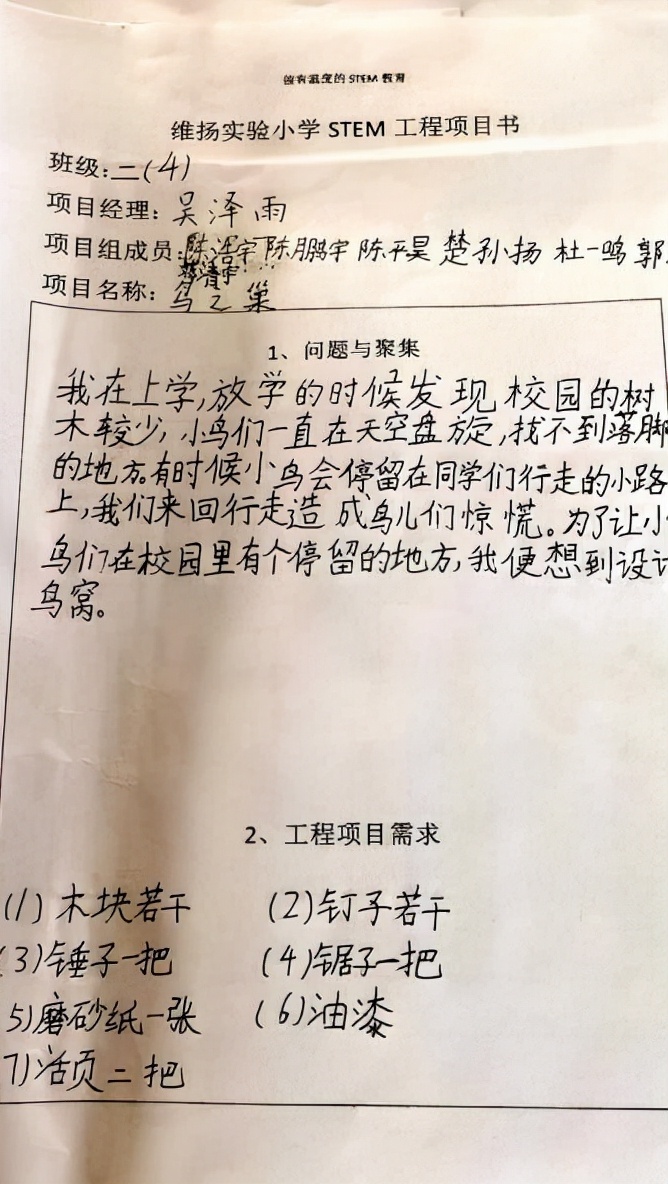 做有温度的 STEM 教育
维扬实验小学 STEM 工程项目书
班级:二(4)
项目经理: 吴泽雨
项目组成员: 陈浩宇 陈鹏宇 陈平昊 楚孙扬 杜一鸣 郭
项目名称: 鸟之巢
1、问题与聚集
我在上学,放学的时候发现校园的树
木较少,小鸟们一直在天空盘旋,找不到落脚
的地方。有时候小鸟会停留在同学们行走的小路
上,我们来回行走造成鸟儿们惊慌。为了让小
鸟们在校园里有个停留的地方,我便想到设计
鸟窝。
2、工程项目需求
(1) 木块若干 (2)钉子若干
(3)锤子一把 (4)锯子一把
5)磨砂纸一张 (6)油漆
7)活页二把